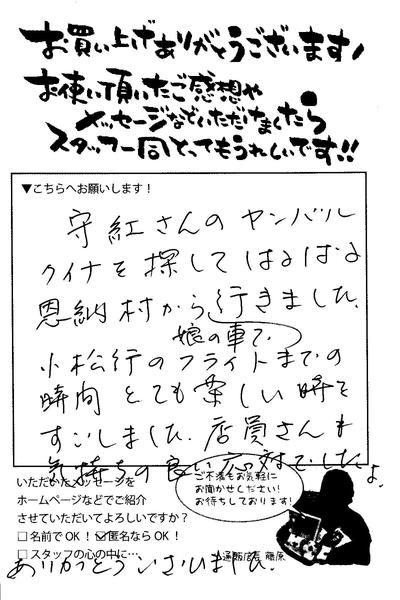 お買い上げありがとうございます!
お使い頂いたご感想や
メッセージなどいただけましたら
スタッフ一同とってもうれしいです!!
▼こちらへお願いします!
守紅さんのヤンバル
クイナを探してはるばる
恩納村から行きました、
娘の車で、
小松行のフライトまでの
時間とても楽しい時を
すごしました、店員さんも
気持ちの良い応対でしたよ、
いただいたメッセージを
ホームページなどでご紹介
させていただいてよろしいですか?
□名前でOK! ☑匿名ならOK!
□スタッフの心の中に…
ご不満もお気軽に
お聞かせください!
お待ちしております!
通販店長 藤原
ありがとうございました、